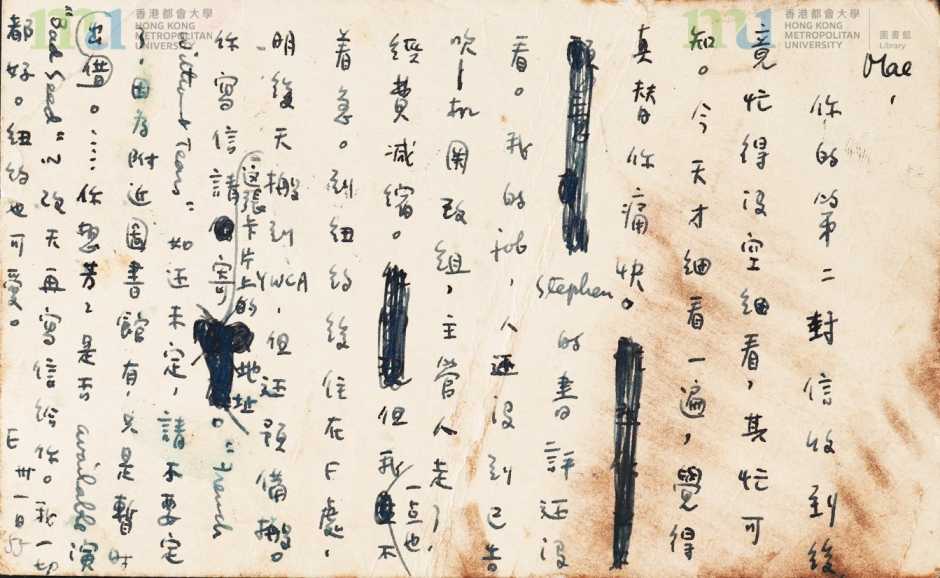 香港都會大學
HONG KONG
METROPOLITAN
UNIVERSITY
香港都會大學
HONG KONG
METROPOLITAN
UNIVERSITY
圖書館
Library
Mae,
你的第二封信收到後
竟忙得没空細看,其忙可
知。今天才細看一遍,覺得
真替你痛快。
Stephen 的書評还没
看。我的,人还没到已告
吹—机関改組,主管人走了,
經費减縮。但我一点也不
着急。到紐約後住在F處,
明後天搬到YWCA,但还預備搬。
你寫信請寄這張卡片上的地址。"French
without Tears" 如还未定,請不要定
了。因為附近圖書館有,只是暫时
出借。……你想芳2是否available演
"Bad Seed"?改天再寫信給你。我一切
都好。紐約也可愛。 E 卅一日